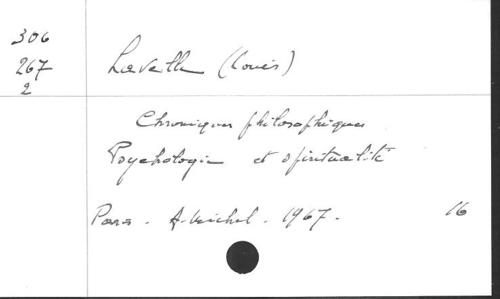 306
267
2
Lavelle (Louis)
Chroniques philosophiques
Psychologie et spiritualité
Paris. A. Michel. 1967. 16